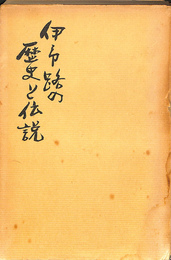 伊予路の
歴史と伝説